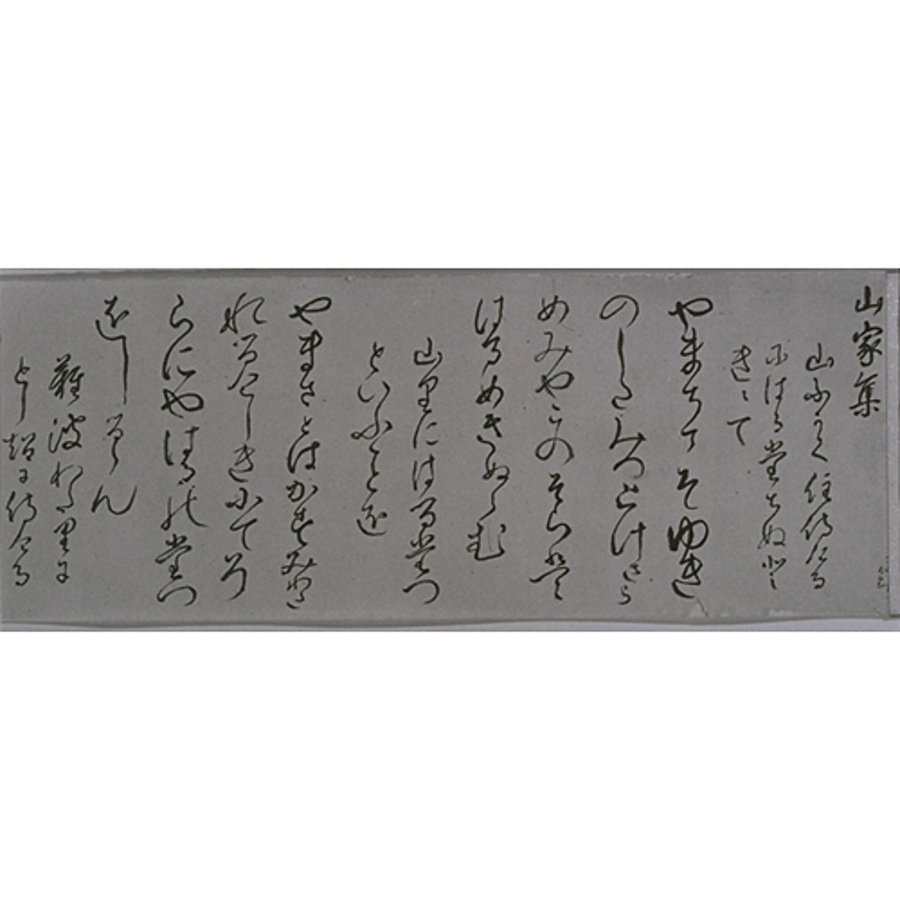 山家集
山ふかく住侍ける
にはるたちぬと
きゝて
やまちこそゆき
のしたみつとけさら
めみやこのそらは
はるめきぬらむ
山里にはるたつ
といふことを
やまさとはかすみわた
れるけしきにてそ
らにやはるのたつ
をしるらん
難波わたりに
とし超に侍ける